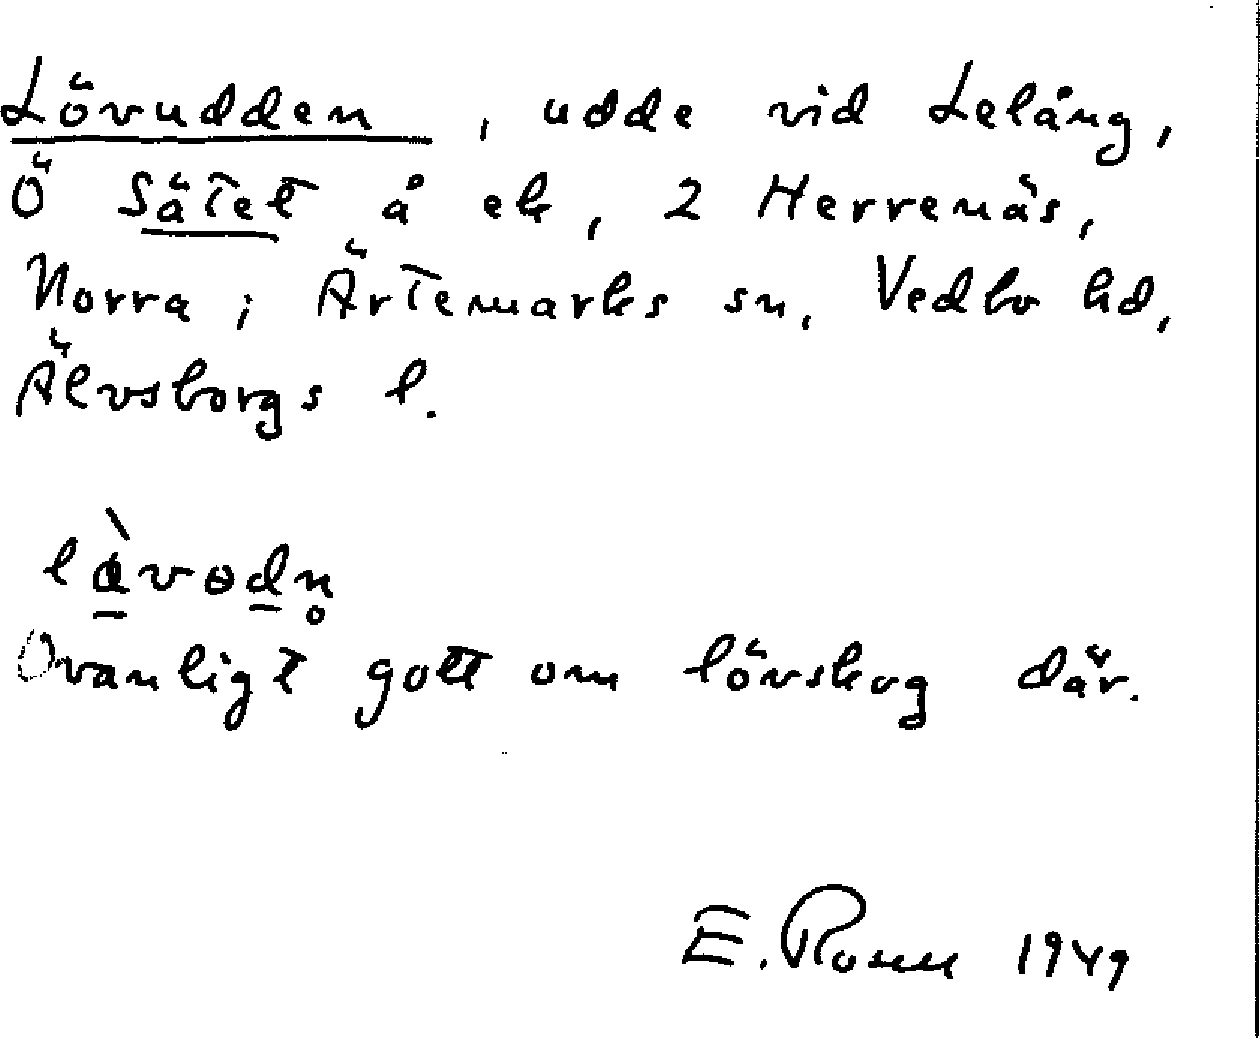 Lövudden, udde vid Lelång,
Ö Sätet å ek, 2 Herrenäs,
Norra; Ärtemarks sn, Vedbo hd,
Älvsborgs l.
Ovanligt gott om lövskog där.
E. 1949